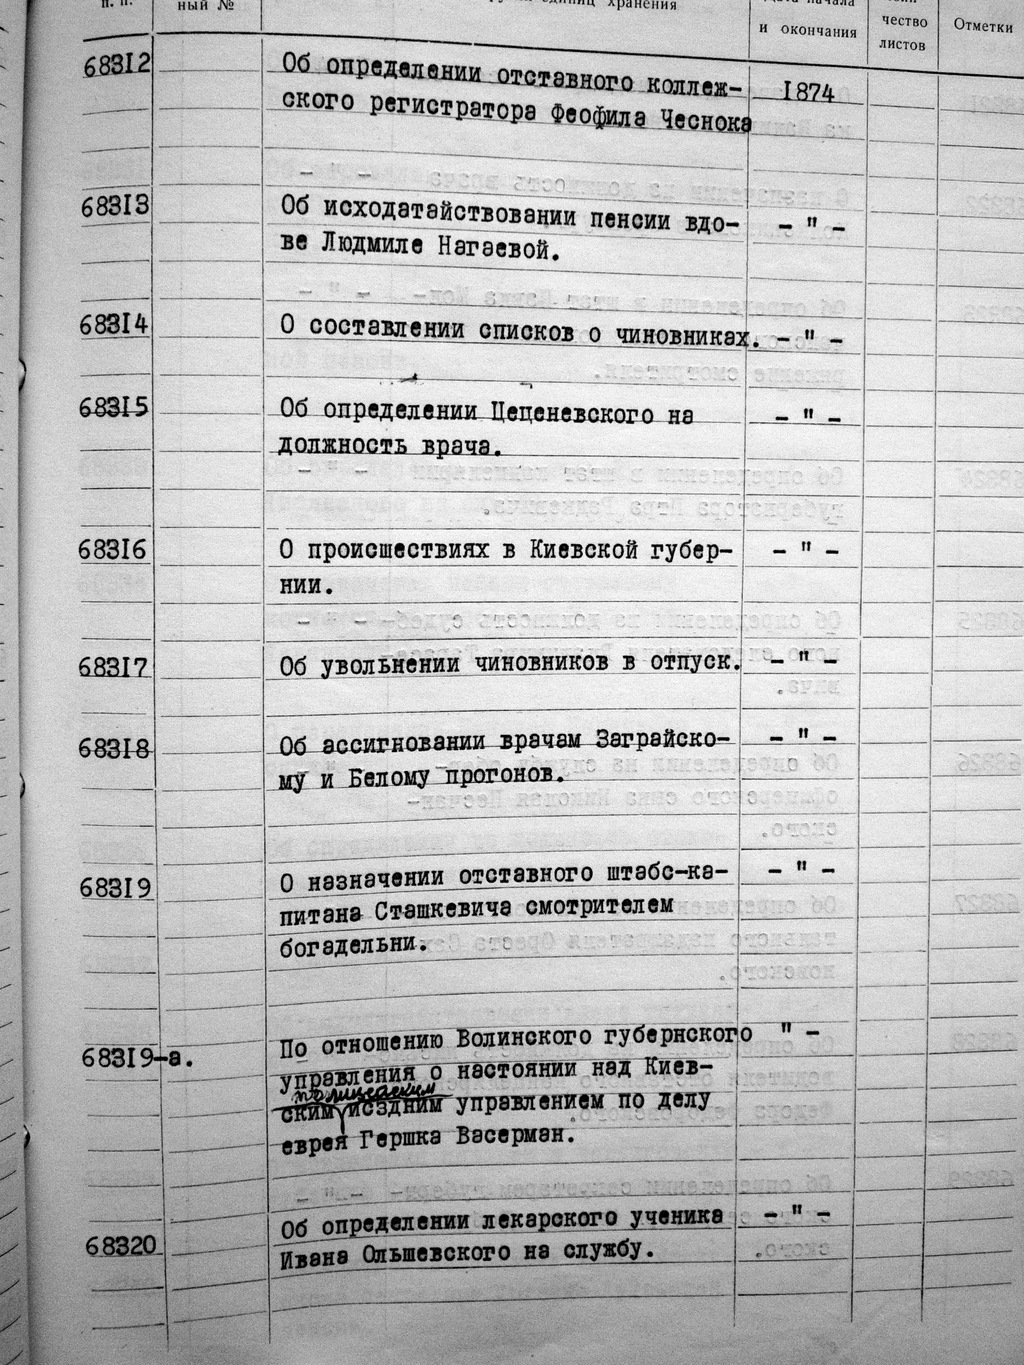 п. п.
ный №
единиц хранения
Дата начала
и окончания
чество
листов
Отметки
68312
Об определении отставного коллеж-
1874
ского регистратора Феофила Чеснока
68313
Об исходатайствовании пенсии вдо-
- " -
ве Людмиле Нагаевой.
68314
О составлении списков о чиновниках.
- " -
68315
Об определении Цеценевского на
- " -
должность врача.
68316
О происшествиях в Киевской губер-
- " -
нии.
68317
Об увольнении чиновников в отпуск.
- " -
68318
Об ассигновании врачам Заграйско-
- " -
му и Белому прогонов.
68319
О назначении отставного штабс-ка-
- " -
питана Сташкевича смотрителем
богадельни.
68319-а.
По отношению Волинского губернского
" -
управления о настоянии над Киев-
полицейским
ским исздним управлением по делу
еврея Гершка Васерман.
68320
Об определении лекарского ученика
- " -
Ивана Ольшевского на службу.